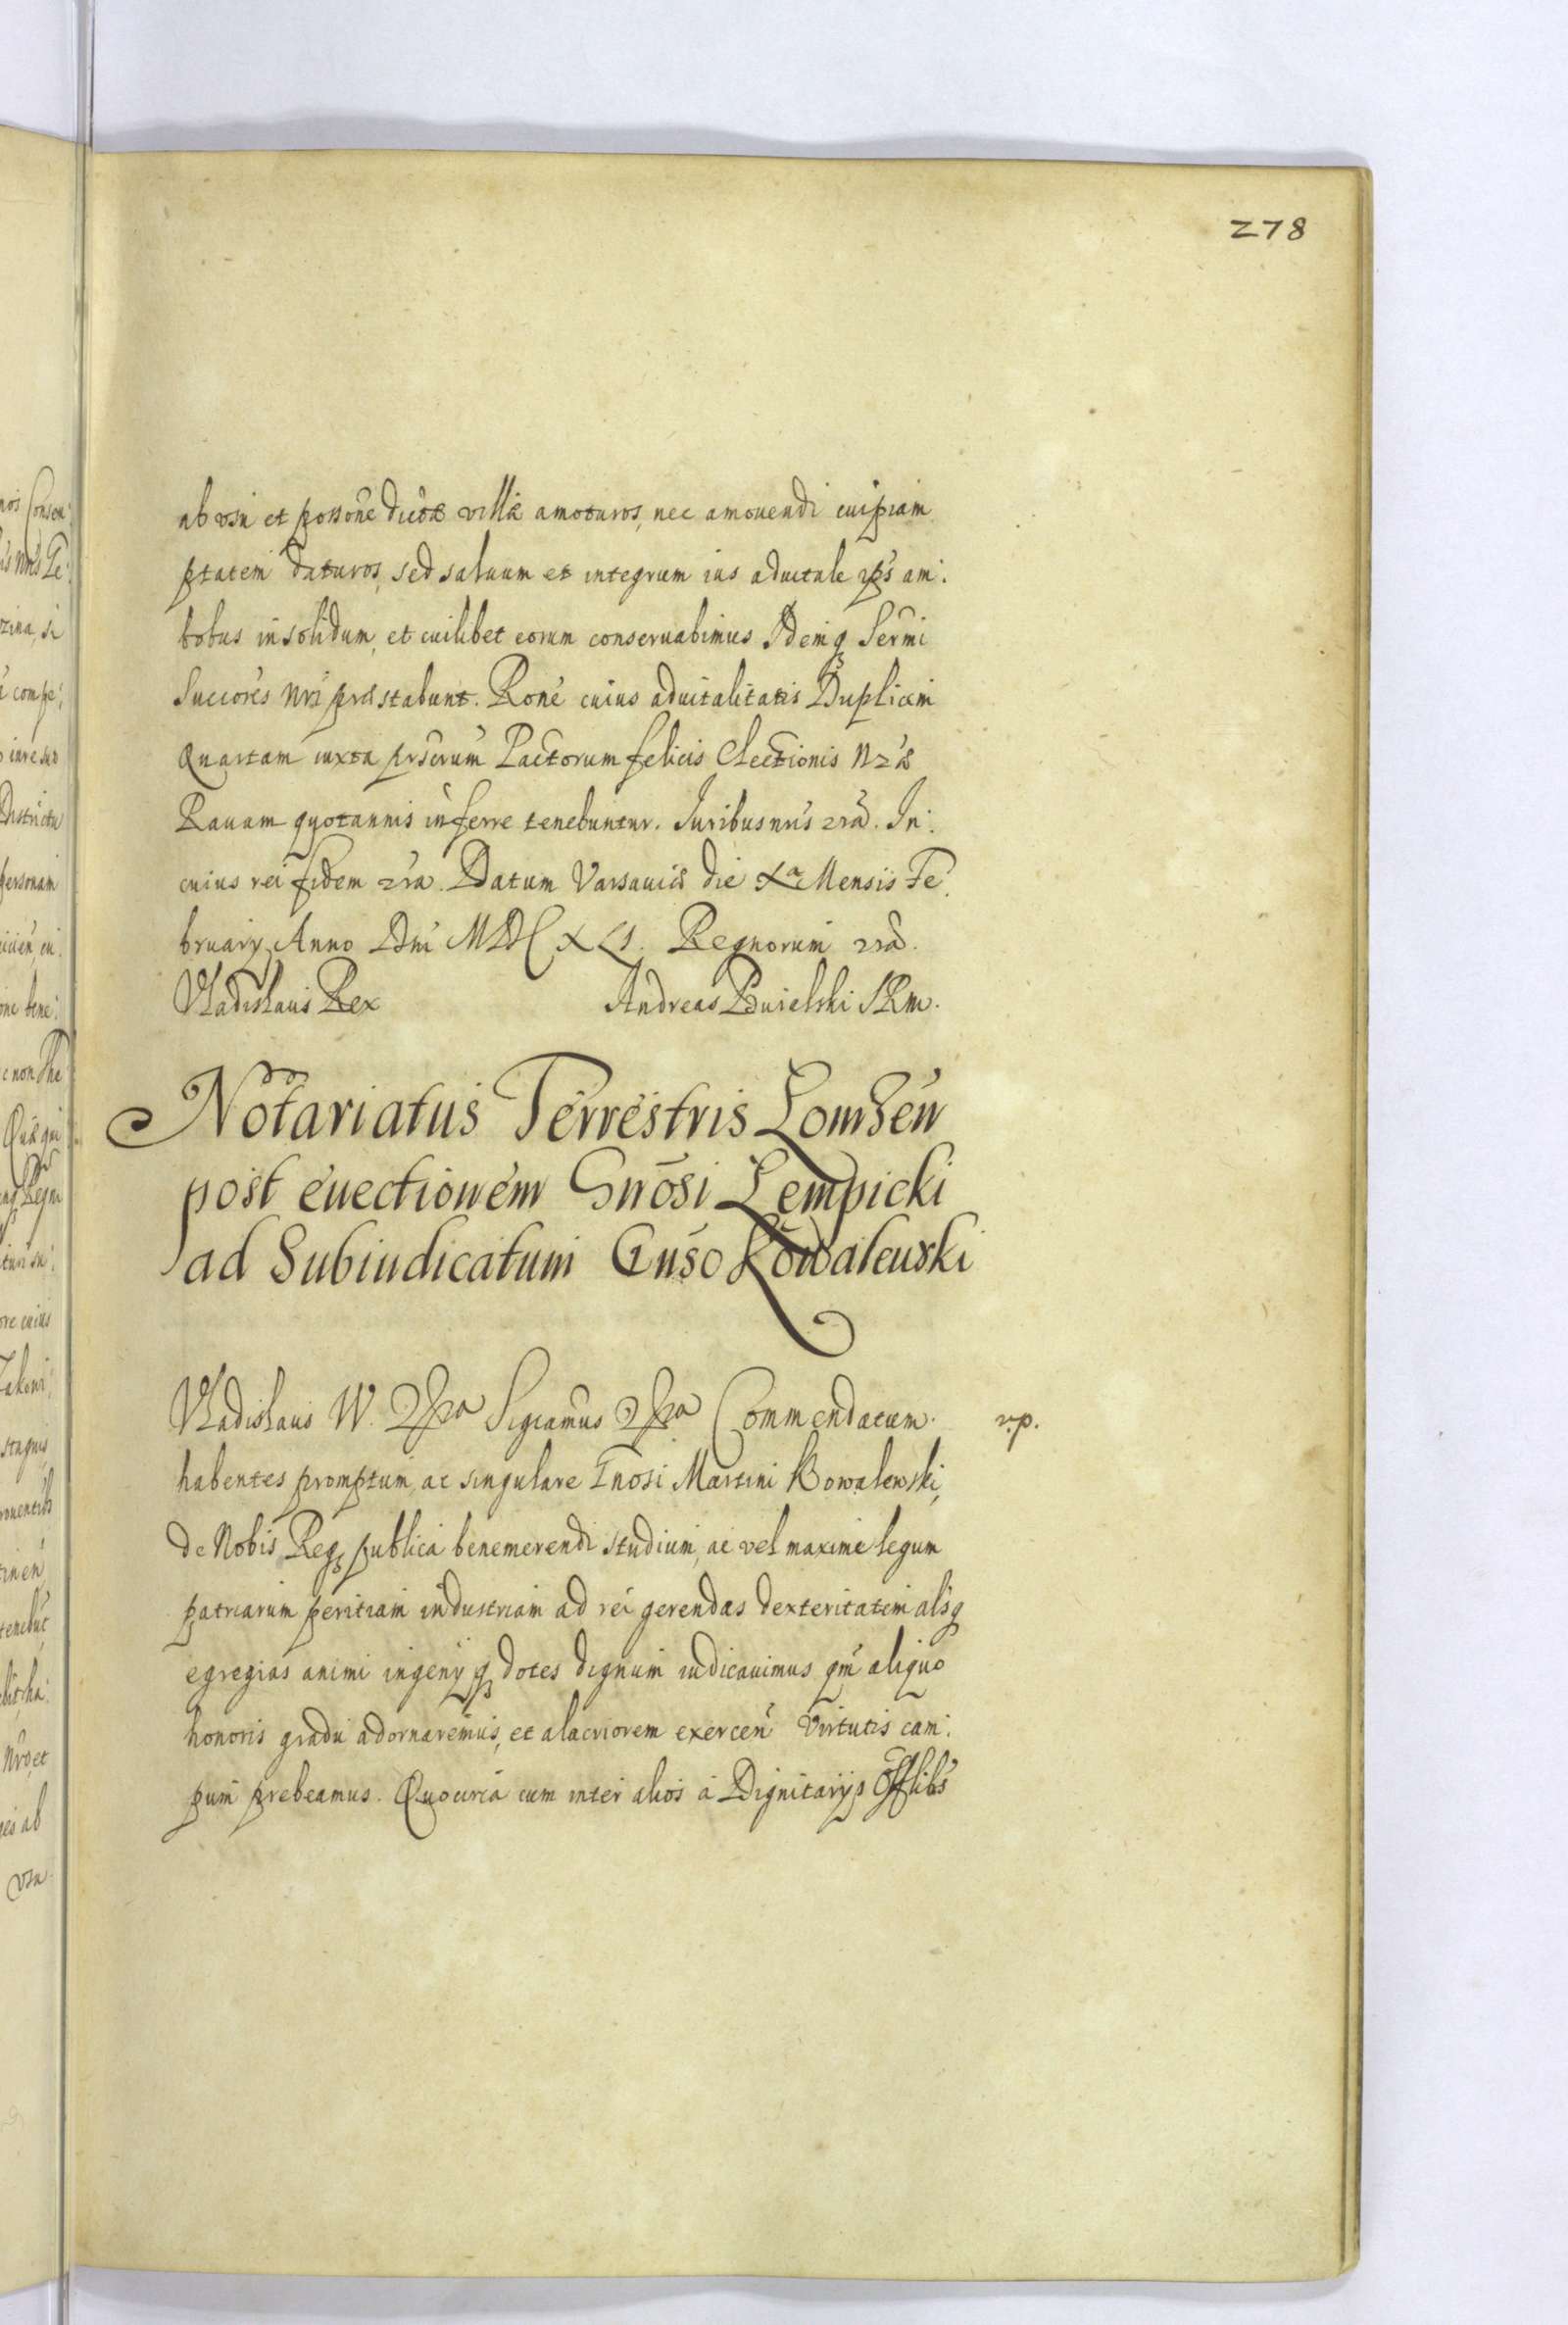 278
ab usu et possone dictæ villæ amoturos, nec amouendi cuipiam
ptatem daturos, sed saluum et integrum ius aduitale ips am:
bobus in solidum, et cuilibet eorum conseruabimus Idemq Sermi
Succores Nri præstabunt. Rone cuius aduitalitatis Duplicem
Quartam iuxta prscrum Pactorum felicis Electionis Nræ
Rauam quotannis inferre tenebuntur. Juribus nris 2ra. In:
cuius rei fidem 2ra. Datum Varsauiæ die Xa Mensis Fe:
bruarij Anno Dni MDCXLI. Regnorum 2ra.
Vladislaus Rex Andreas Dwielski SRM.
Notariatus Terrestris Lomzen
post euectionem Gnosi Lempicki
ad Subiudicatum Gnso Kowaleuski
Vladislaus IV. Significamus Commendatum
r.p.
habentes promptum, ac singulare Gnosi Martini Kowalewski,
de Nobis Req publica benemerendi studium, ac vel maxime legum
patriarum peritiam industriam ad res gerendas dexteritatem alsq
egregias animi ingenijq dotes dignum iudicauimus qm aliquo
honoris gradu adornaremus, et alacriorem exercen Virtutis cam:
pum prebeamus. Quocirca cum inter alios a Dignitarijs Offlibs